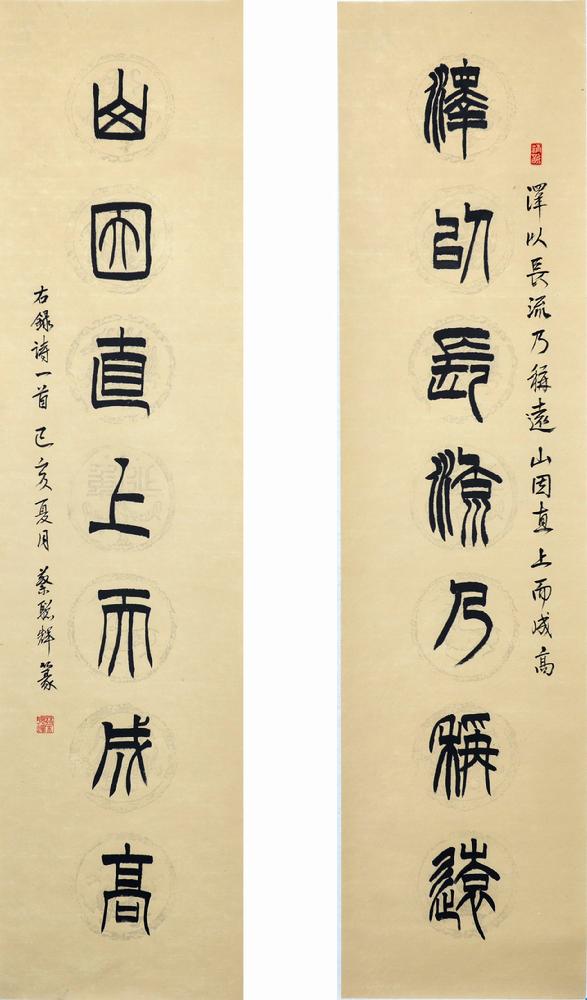 澤以長流乃稱遠山因直上而成高
澤以長流乃稱遠
山因直上而成高
右錄詩一首己亥夏月蔡聰輝篆